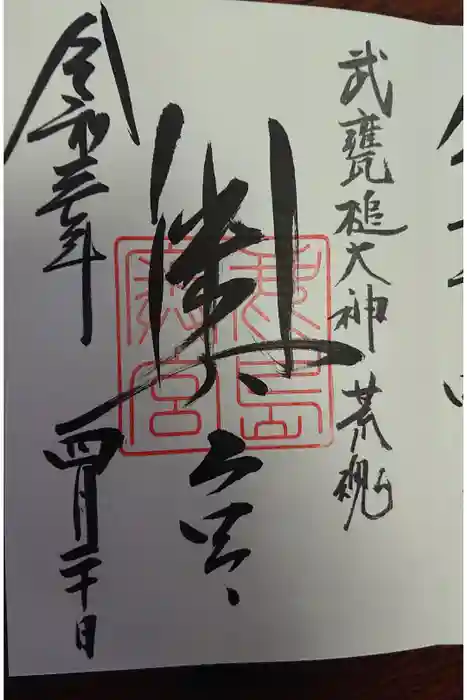 武甕槌大神 荒魂
奥宮
鹿島
奥宮
令和三年 四月二十日